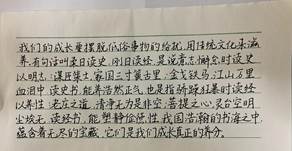 我们的成长要摆脱低俗事物的纷扰,用传统文化来滋
养。有句话叫柔日读史,刚日读经,是说意志懈怠时读史
以明志:谋臣策士,家国三寸簧古里;金戈铁马,江山万里
血泪中。读史书,能养浩然正气,也是指骄躁狂暴时读经
以养性:老庄之道,清净无为是非空;菩提之心,灵台空明
尘埃无。读经书,能塑静俭德性。我国浩瀚的书海之中,
蕴含着无尽的宝藏,它们是我们成长真正的养分。